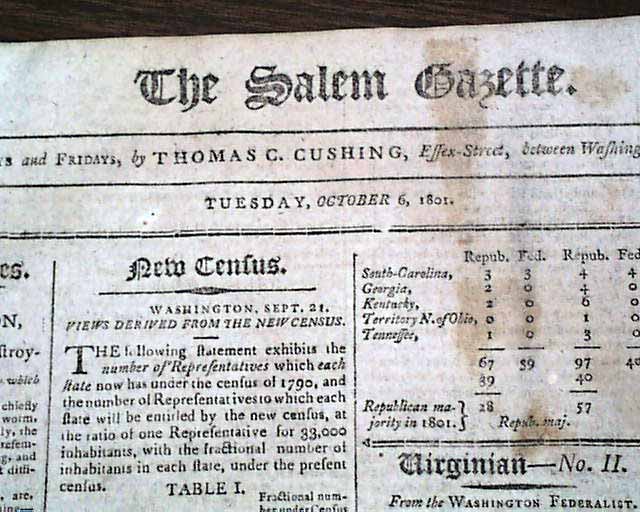 The Salem Gazette.
and FRIDAYS, by THOMAS C. CUSHING, Essex-Street, between
TUESDAY, OCTOBER 6, 1801.
New Census.
WASHINGTON, SEPT. 21.
VIEWS DERIVED FROM THE NEW CENSUS.
THE following statement exhibits the
number of Representatives which each
state now has under the census of 1790, and
the number of Representatives to which each
state will be entitled by the new census, at
the ratio of one Representative for 33,000
inhabitants, with the fractional number of
inhabitants in each state, under the present
census.
TABLE I.
Fractional num-
ber under Census
Repub. Fed. Repub. Fed.
South-Carolina, 3 3 4 4
Georgia, 2 0 4 0
Kentucky, 2 0 6 0
Territory N. of Ohio, 0 0 1 0
Tennessee, 1 0 3 0
67 39 97 40
39 40
Republican ma- } 28 57
jority in 1801. } Repub. maj.
Virginian—No. II.
From the WASHINGTON FEDERALIST.
which
chiefly
worm
the
and
are,